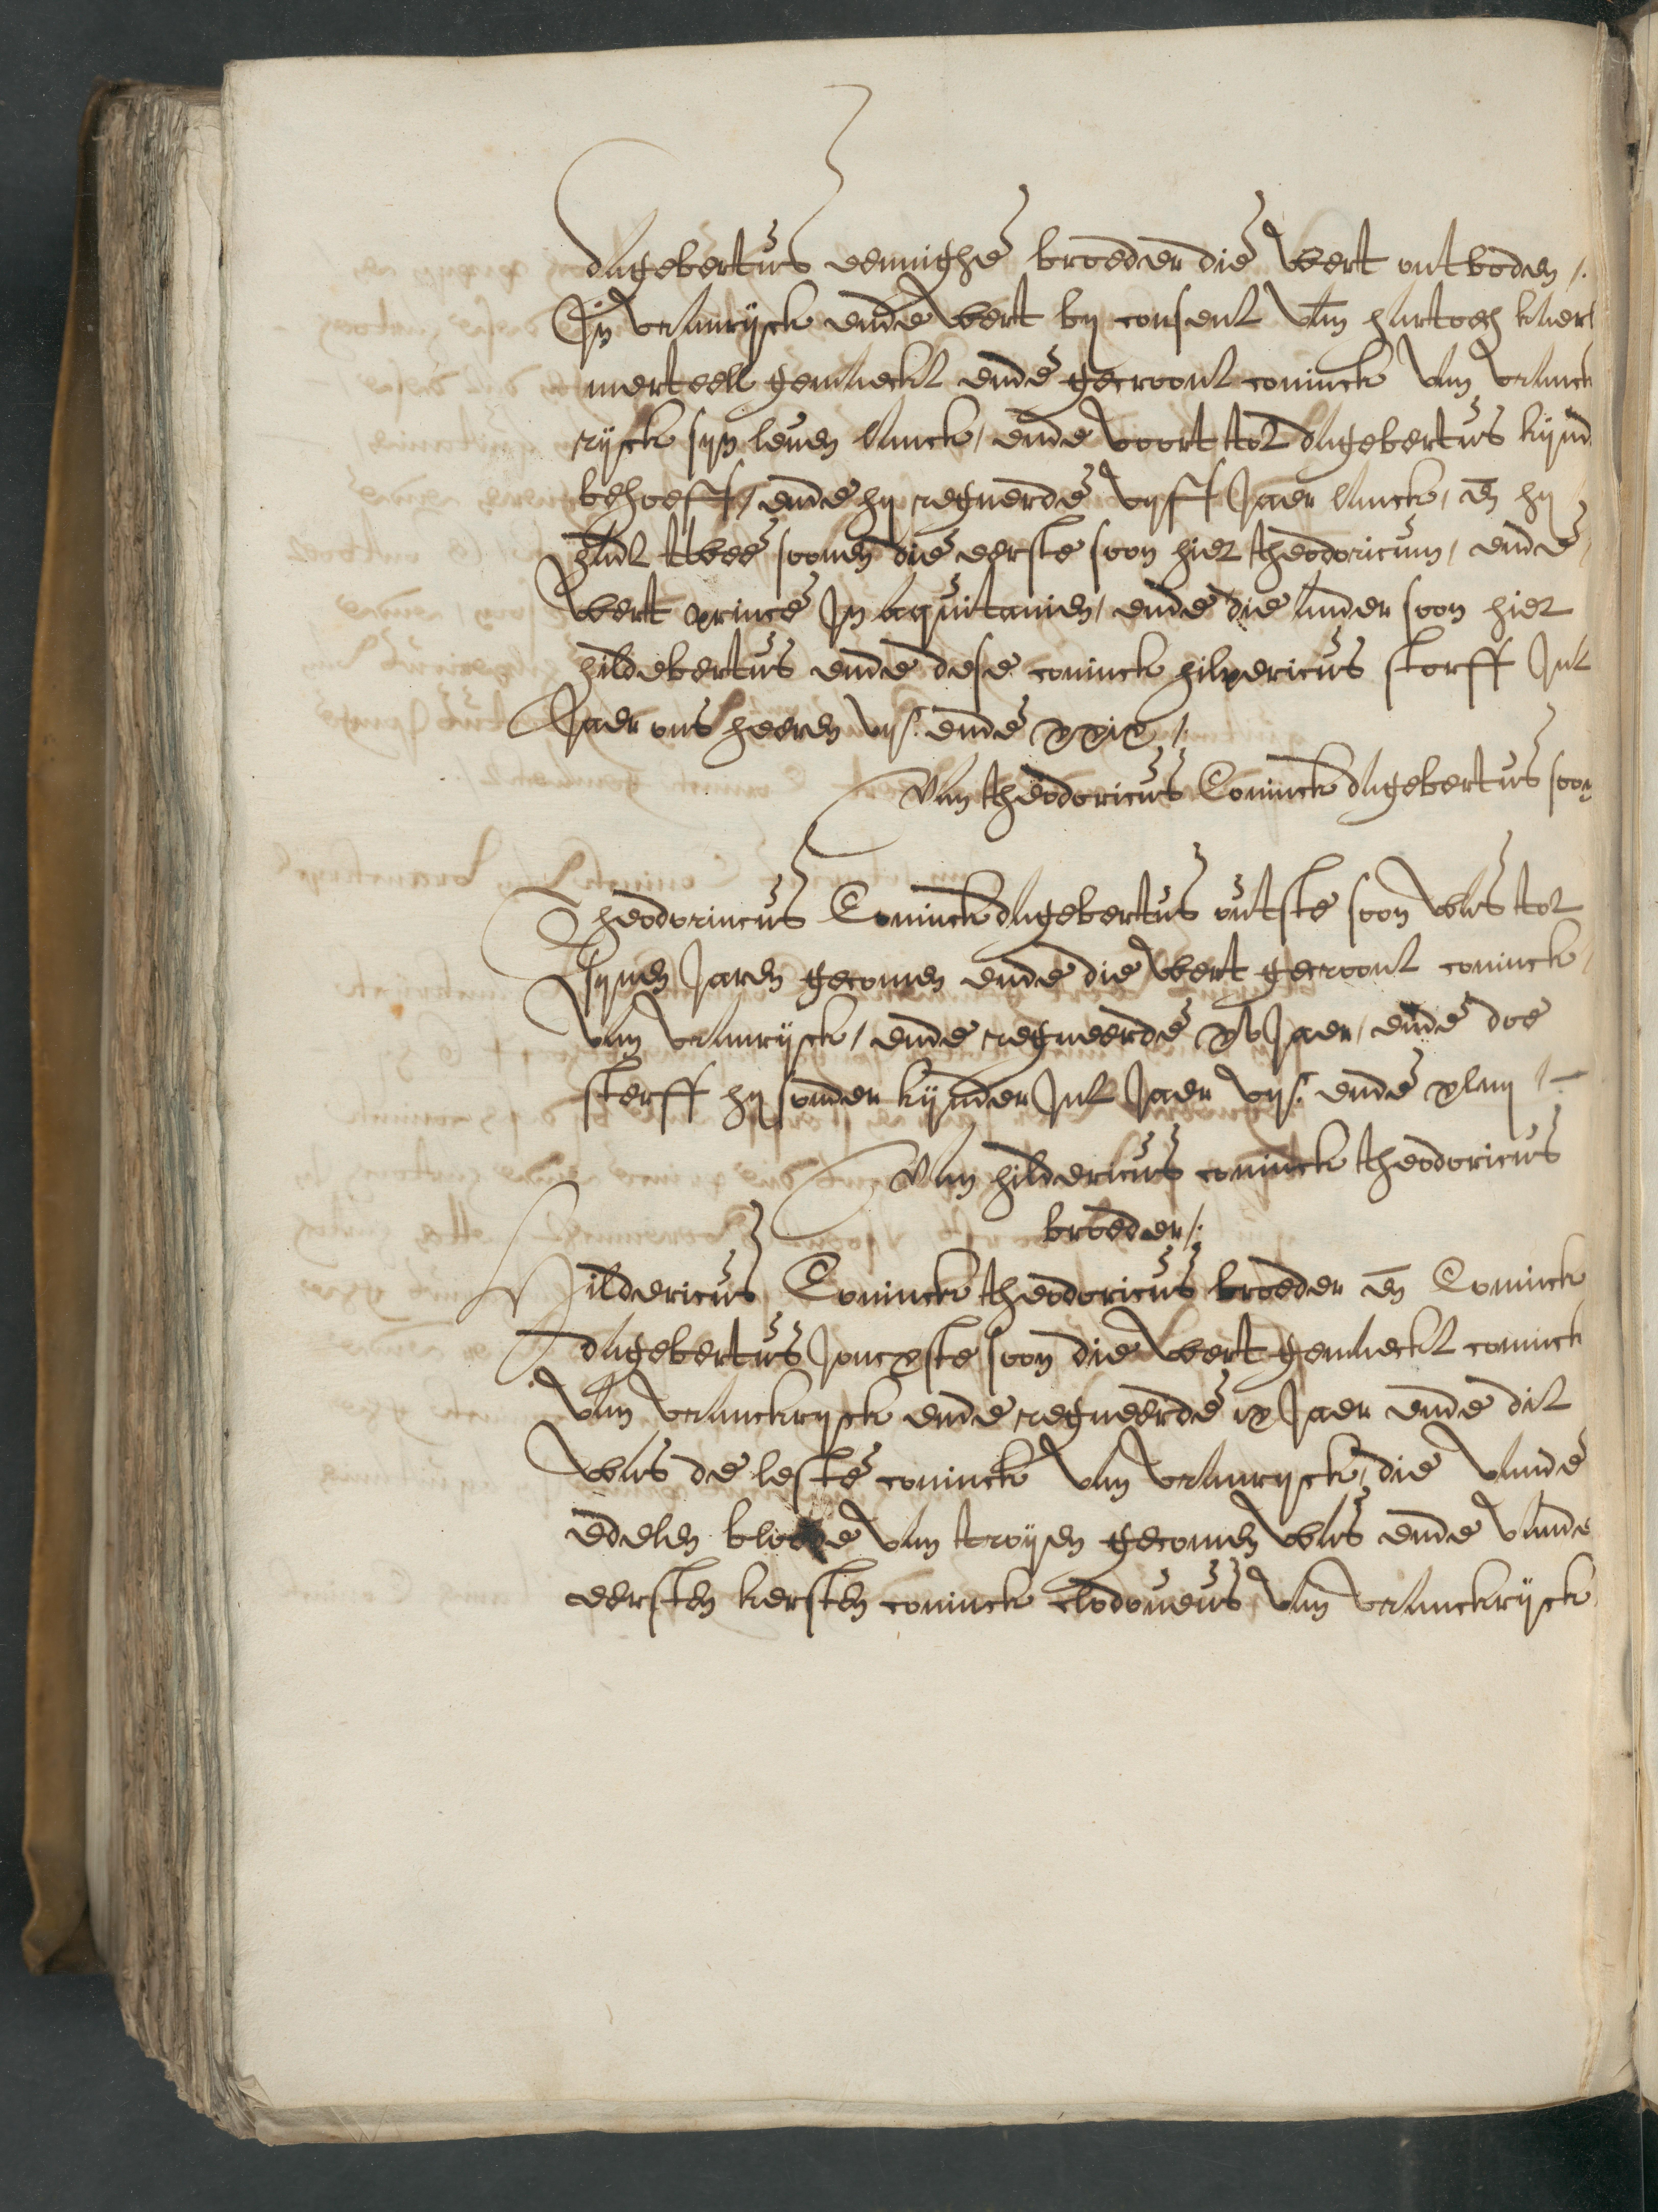 dagebertus eenighe broeder die wert ontboden /.
In vrancryck ende wert by consent van hartoch kaer
merteell gemaeckt ende gecroont coninck van vranck
ryck syn leven lanck / ende voort tot dagebertus kynd
behoeff / ende hy regnerde vyff Jaer lanck / en̄ hy
hadt twee soonen die eerste soon hiet theodoricum / ende
wert prince In aquitanien / ende die ander soon hiet
hildebertus ende dese coninck hilpericus storff Int
Jaer ons heeren vijc. ende xxix /.
Van theodoricus Coninck dagebertus soon
Theodorincus Coninck dagebertus outste soon was tot
synen Jaren gecomen ende die wert gecroont coninck
van vrancryck / ende regneerde xv Jaer / ende doe
sterff hy sonder kynder Int Jaer vijc. ende xliiij /-
Van hildericus coninck theodoricus
broeder /.
Hildericus Coninck theodoricus broeder en̄ Coninck
dagebertus Joncxste soon die wert gemaeckt coninck
van vranckryck ende regneerde ix Jaer ende dit
was de leste coninck van vrancryck / die vande
edelen bloede van troyen gecomen was ende vande
eersten kersten coninck clodoveus van vranckryck